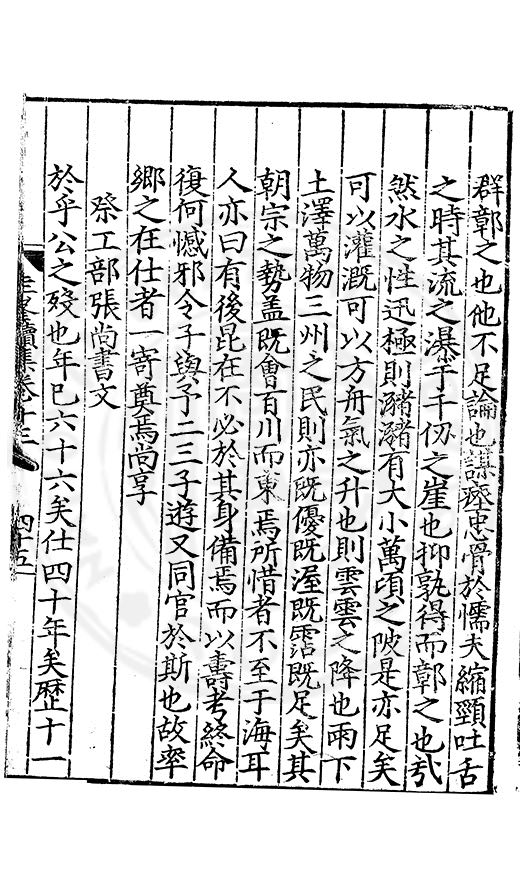 群鄣之也他不足論也謀瘞忠骨於懦夫縮頸吐舌
之時其流之瀑于千仞之崖也抑孰得而鄣之也㢤
然水之性迅極則瀦瀦有大小萬頃之陂是亦足矣
可以灌溉可以方舟氣之升也則雲雲之降也雨下
土澤萬物三州之民則亦既優既渥既霑既足矣其
朝宗之勢盖既會百川而東焉所惜者不至于海耳
人亦曰有後昆在不必於其身備焉而以壽考終命
復何憾邪令子與予二三子遊又同官於斯也故率
鄉之在仕者一寄奠焉尚享
祭工部張尚書文
於乎公之殁也年巳六十六矣仕四十年矣歷十一
續集卷十三
四十五